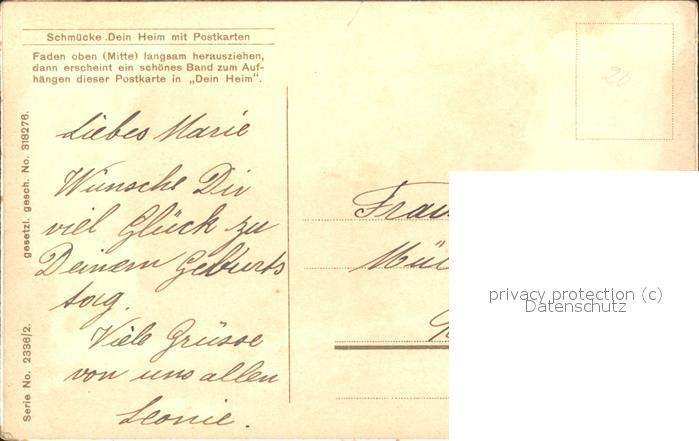 Schmücke Dein Heim mit Postkarten
Faden oben (Mitte) langsam herausziehen,
dann erscheint ein schönes Band zum Auf-
hängen dieser Postkarte in „Dein Heim".
gesetzl. gesch. No. 318276.
Serie No. 2336/2.
Liebes Marie
Wünsche Dir
viel Glück zu
Deinem Geburts
tag.
Viele Grüsse
von uns allen
Leonie.
20
Frau
Mül
privacy protection (c)
Datenschutz